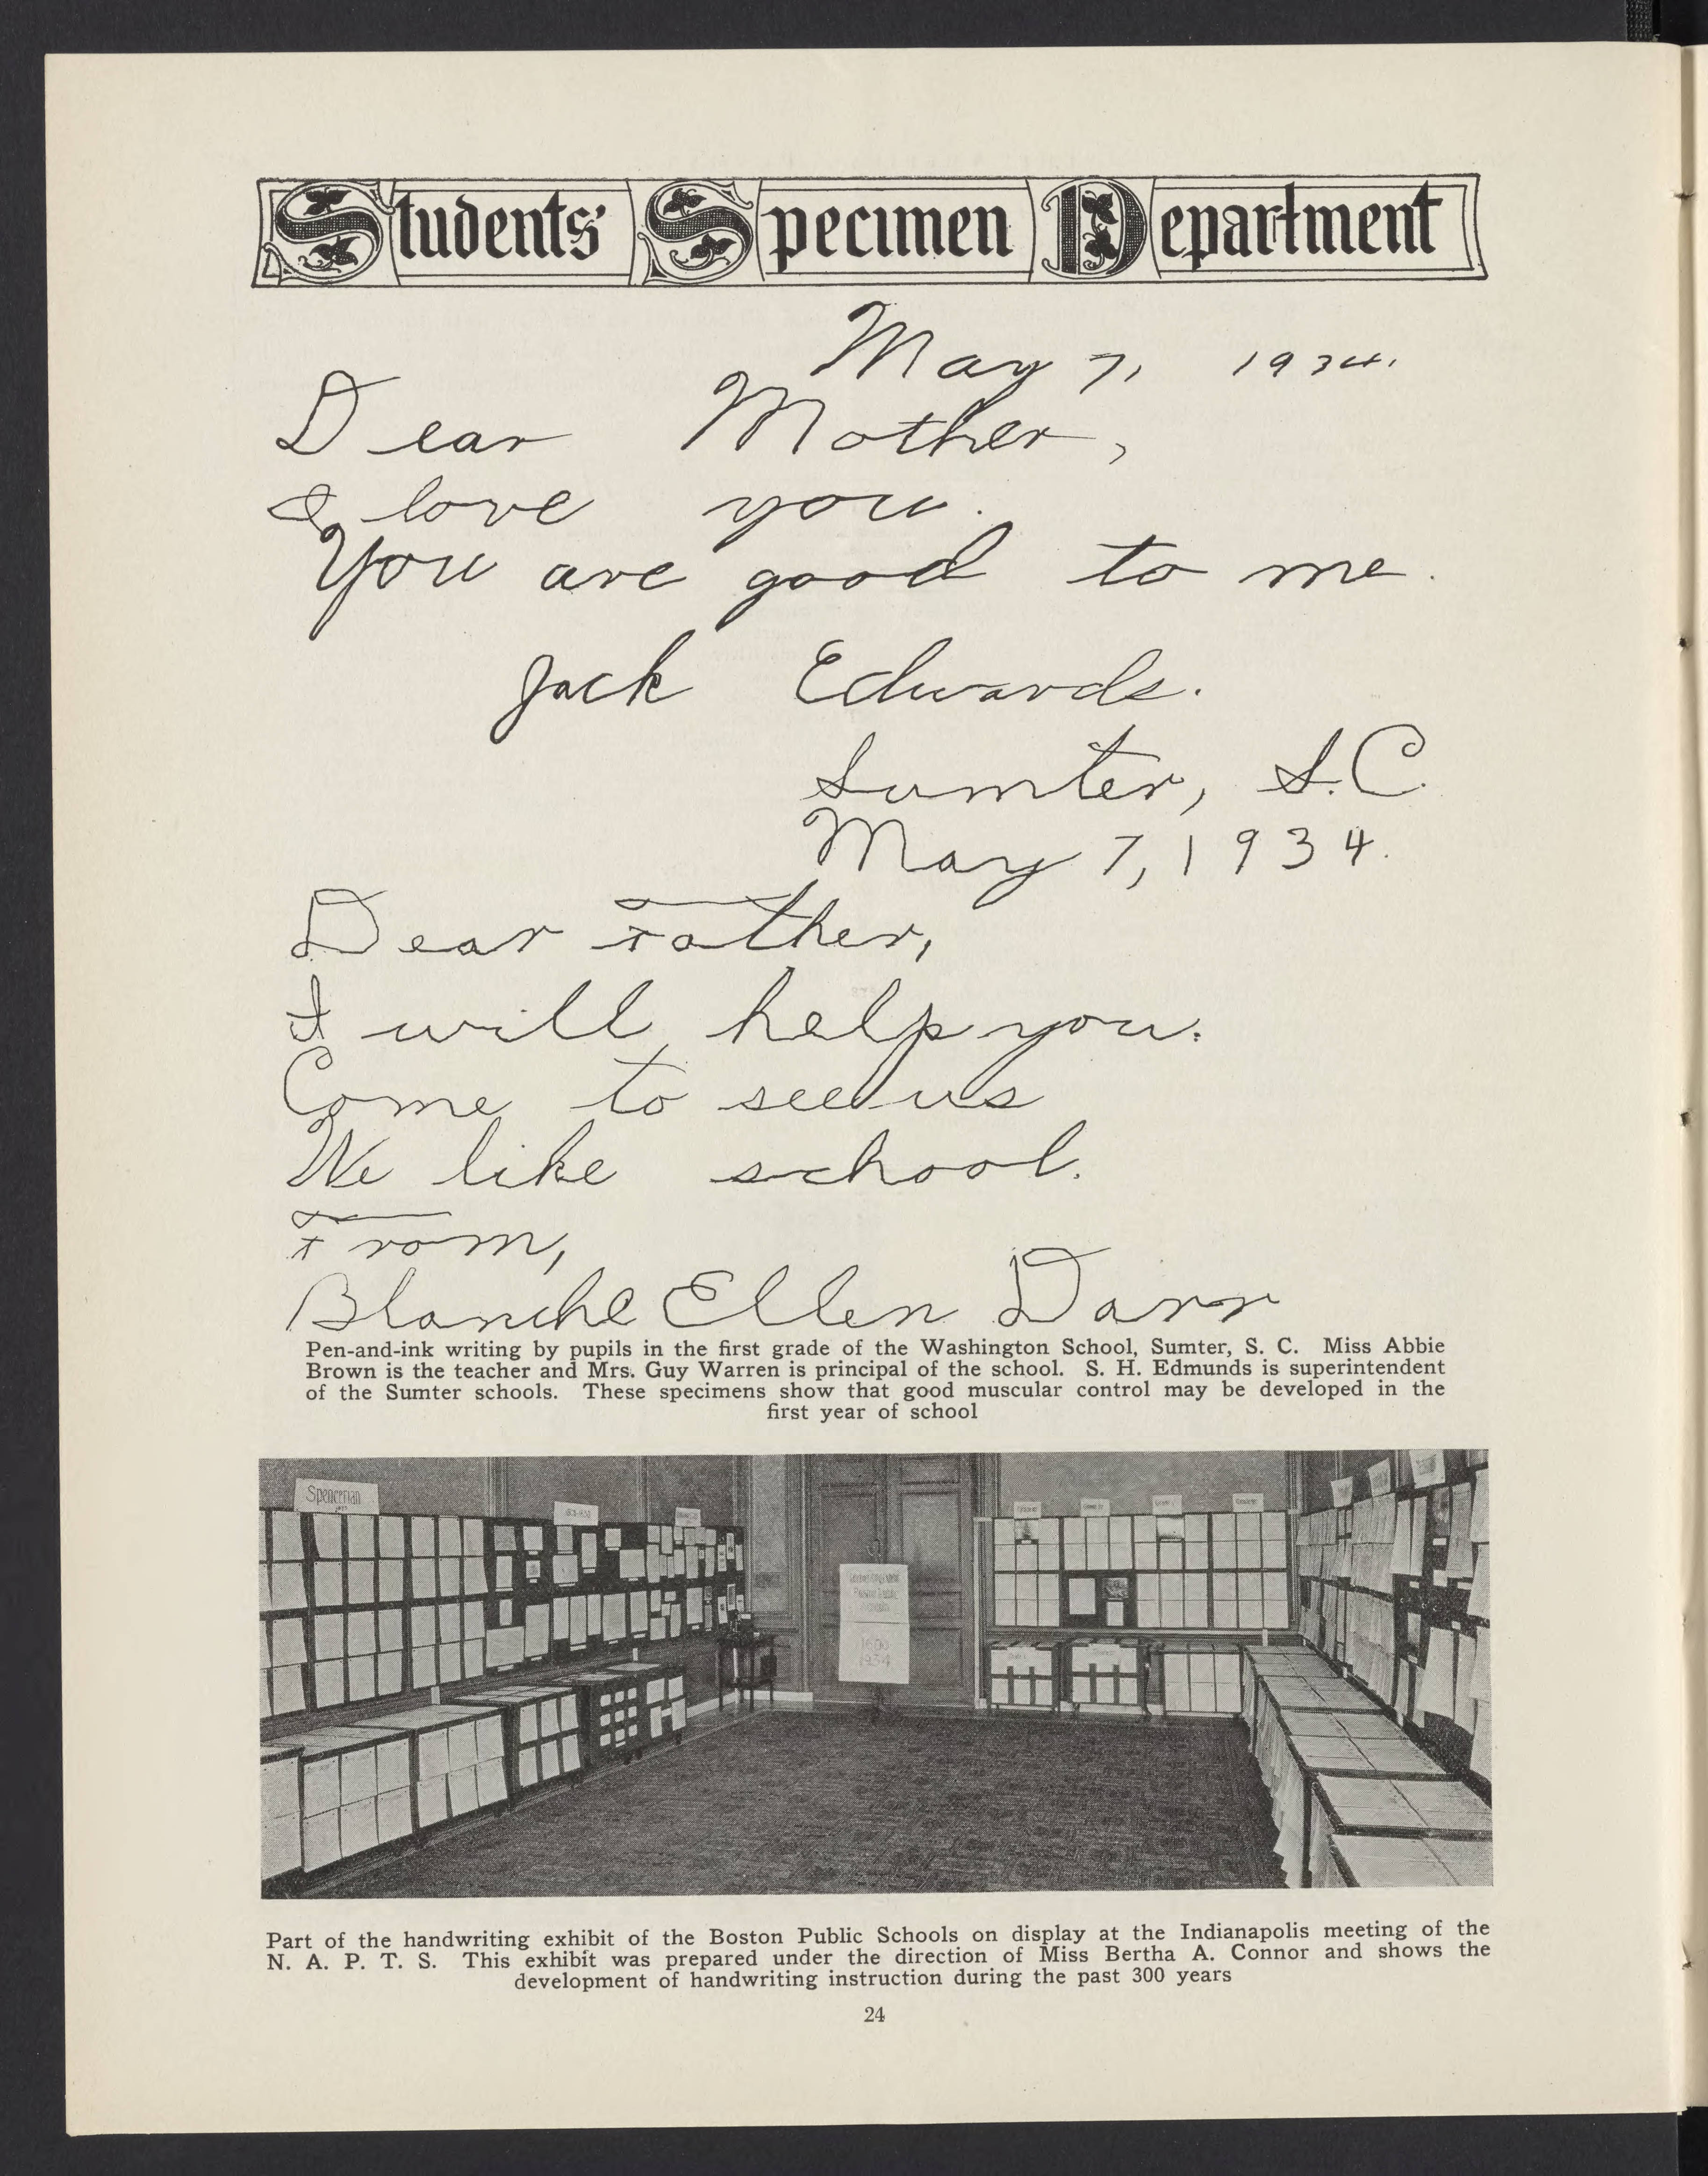 Students' Specimen Department
May 7, 1934.
Dear Mother,
I love you.
You are good to me.
Jack Edwards.
Sumter, S.C.
May 7, 1934.
Dear Father,
I will help you.
Come to see us
We like school.
From,
Blanche Ellen Darr
Pen-and-ink writing by pupils in the first grade of the Washington School, Sumter, S. C. Miss Abbie
Brown is the teacher and Mrs. Guy Warren is principal of the school. S. H. Edmunds is superintendent
of the Sumter schools. These specimens show that good muscular control may be developed in the
first year of school
Spencerian
1600
1934
Part of the handwriting exhibit of the Boston Public Schools on display at the Indianapolis meeting of the
N. A. P. T. S. This exhibit was prepared under the direction of Miss Bertha A. Connor and shows the
development of handwriting instruction during the past 300 years
24